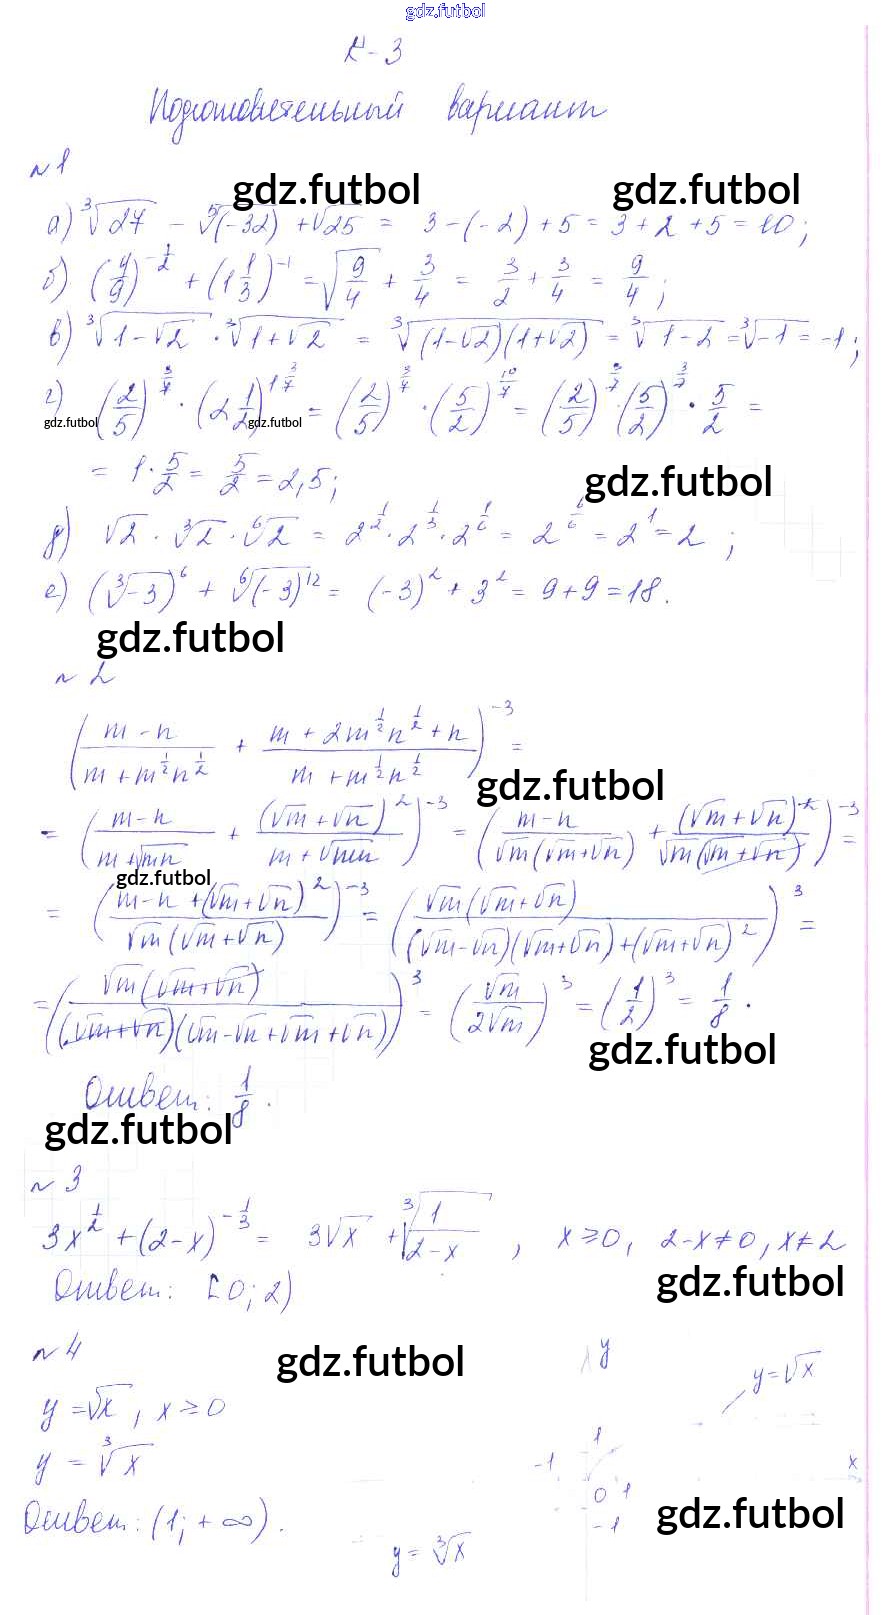 gdz.futbol
К-3
Подготовительный вариант
№1
gdz.futbol gdz.futbol
а) ∛27 - ⁵√(-32) + √25 = 3-(-2)+5 = 3+2+5 = 10;
б) (4/9)^(-1/2) + (1 1/3)^(-1) = √(9/4) + 3/4 = 3/2 + 3/4 = 9/4;
в) ∛(1-√2) · ∛(1+√2) = ∛((1-√2)(1+√2)) = ∛(1-2) = ∛(-1) = -1;
г) (2/5)^(3/7) · (2 1/2)^(1 3/7) = (2/5)^(3/7) · (5/2)^(10/7) = (2/5)^(3/7) · (5/2)^(3/7) · 5/2 =
gdz.futbol gdz.futbol
= 1 · 5/2 = 5/2 = 2,5;
gdz.futbol
д) √2 · ∛2 · ⁶√2 = 2^(1/2) · 2^(1/3) · 2^(1/6) = 2^(6/6) = 2^1 = 2;
е) (∛-3)^6 + ⁶√(-3)^12 = (-3)^2 + 3^2 = 9+9 = 18.
gdz.futbol
№2
((m-n)/(m+m^(1/2)n^(1/2)) + (m+2m^(1/2)n^(1/2)+n)/(m+m^(1/2)n^(1/2)))^(-3) =
gdz.futbol
= ((m-n)/(m+√mn) + (√m+√n)^2/(m+√mn))^(-3) = ((m-n)/(√m(√m+√n)) + (√m+√n)^2/(√m(√m+√n)))^(-3) =
gdz.futbol
= ((m-n+(√m+√n)^2)/(√m(√m+√n)))^(-3) = (√m(√m+√n)/((√m-√n)(√m+√n)+(√m+√n)^2))^3 =
= (√m(√m+√n)/((√m+√n)(√m-√n+√m+√n)))^3 = (√m/2√m)^3 = (1/2)^3 = 1/8.
gdz.futbol
Ответ: 1/8.
gdz.futbol
№3
3x^(1/2) + (2-x)^(-1/3) = 3√x + ∛(1/(2-x)), x≥0, 2-x≠0, x≠2
Ответ: [0; 2)
gdz.futbol
№4
gdz.futbol
y
y=√x
y=√x, x≥0
1
-1
x
y=∛x
0 1
gdz.futbol
-1
Ответ: (1; +∞).
y=∛x